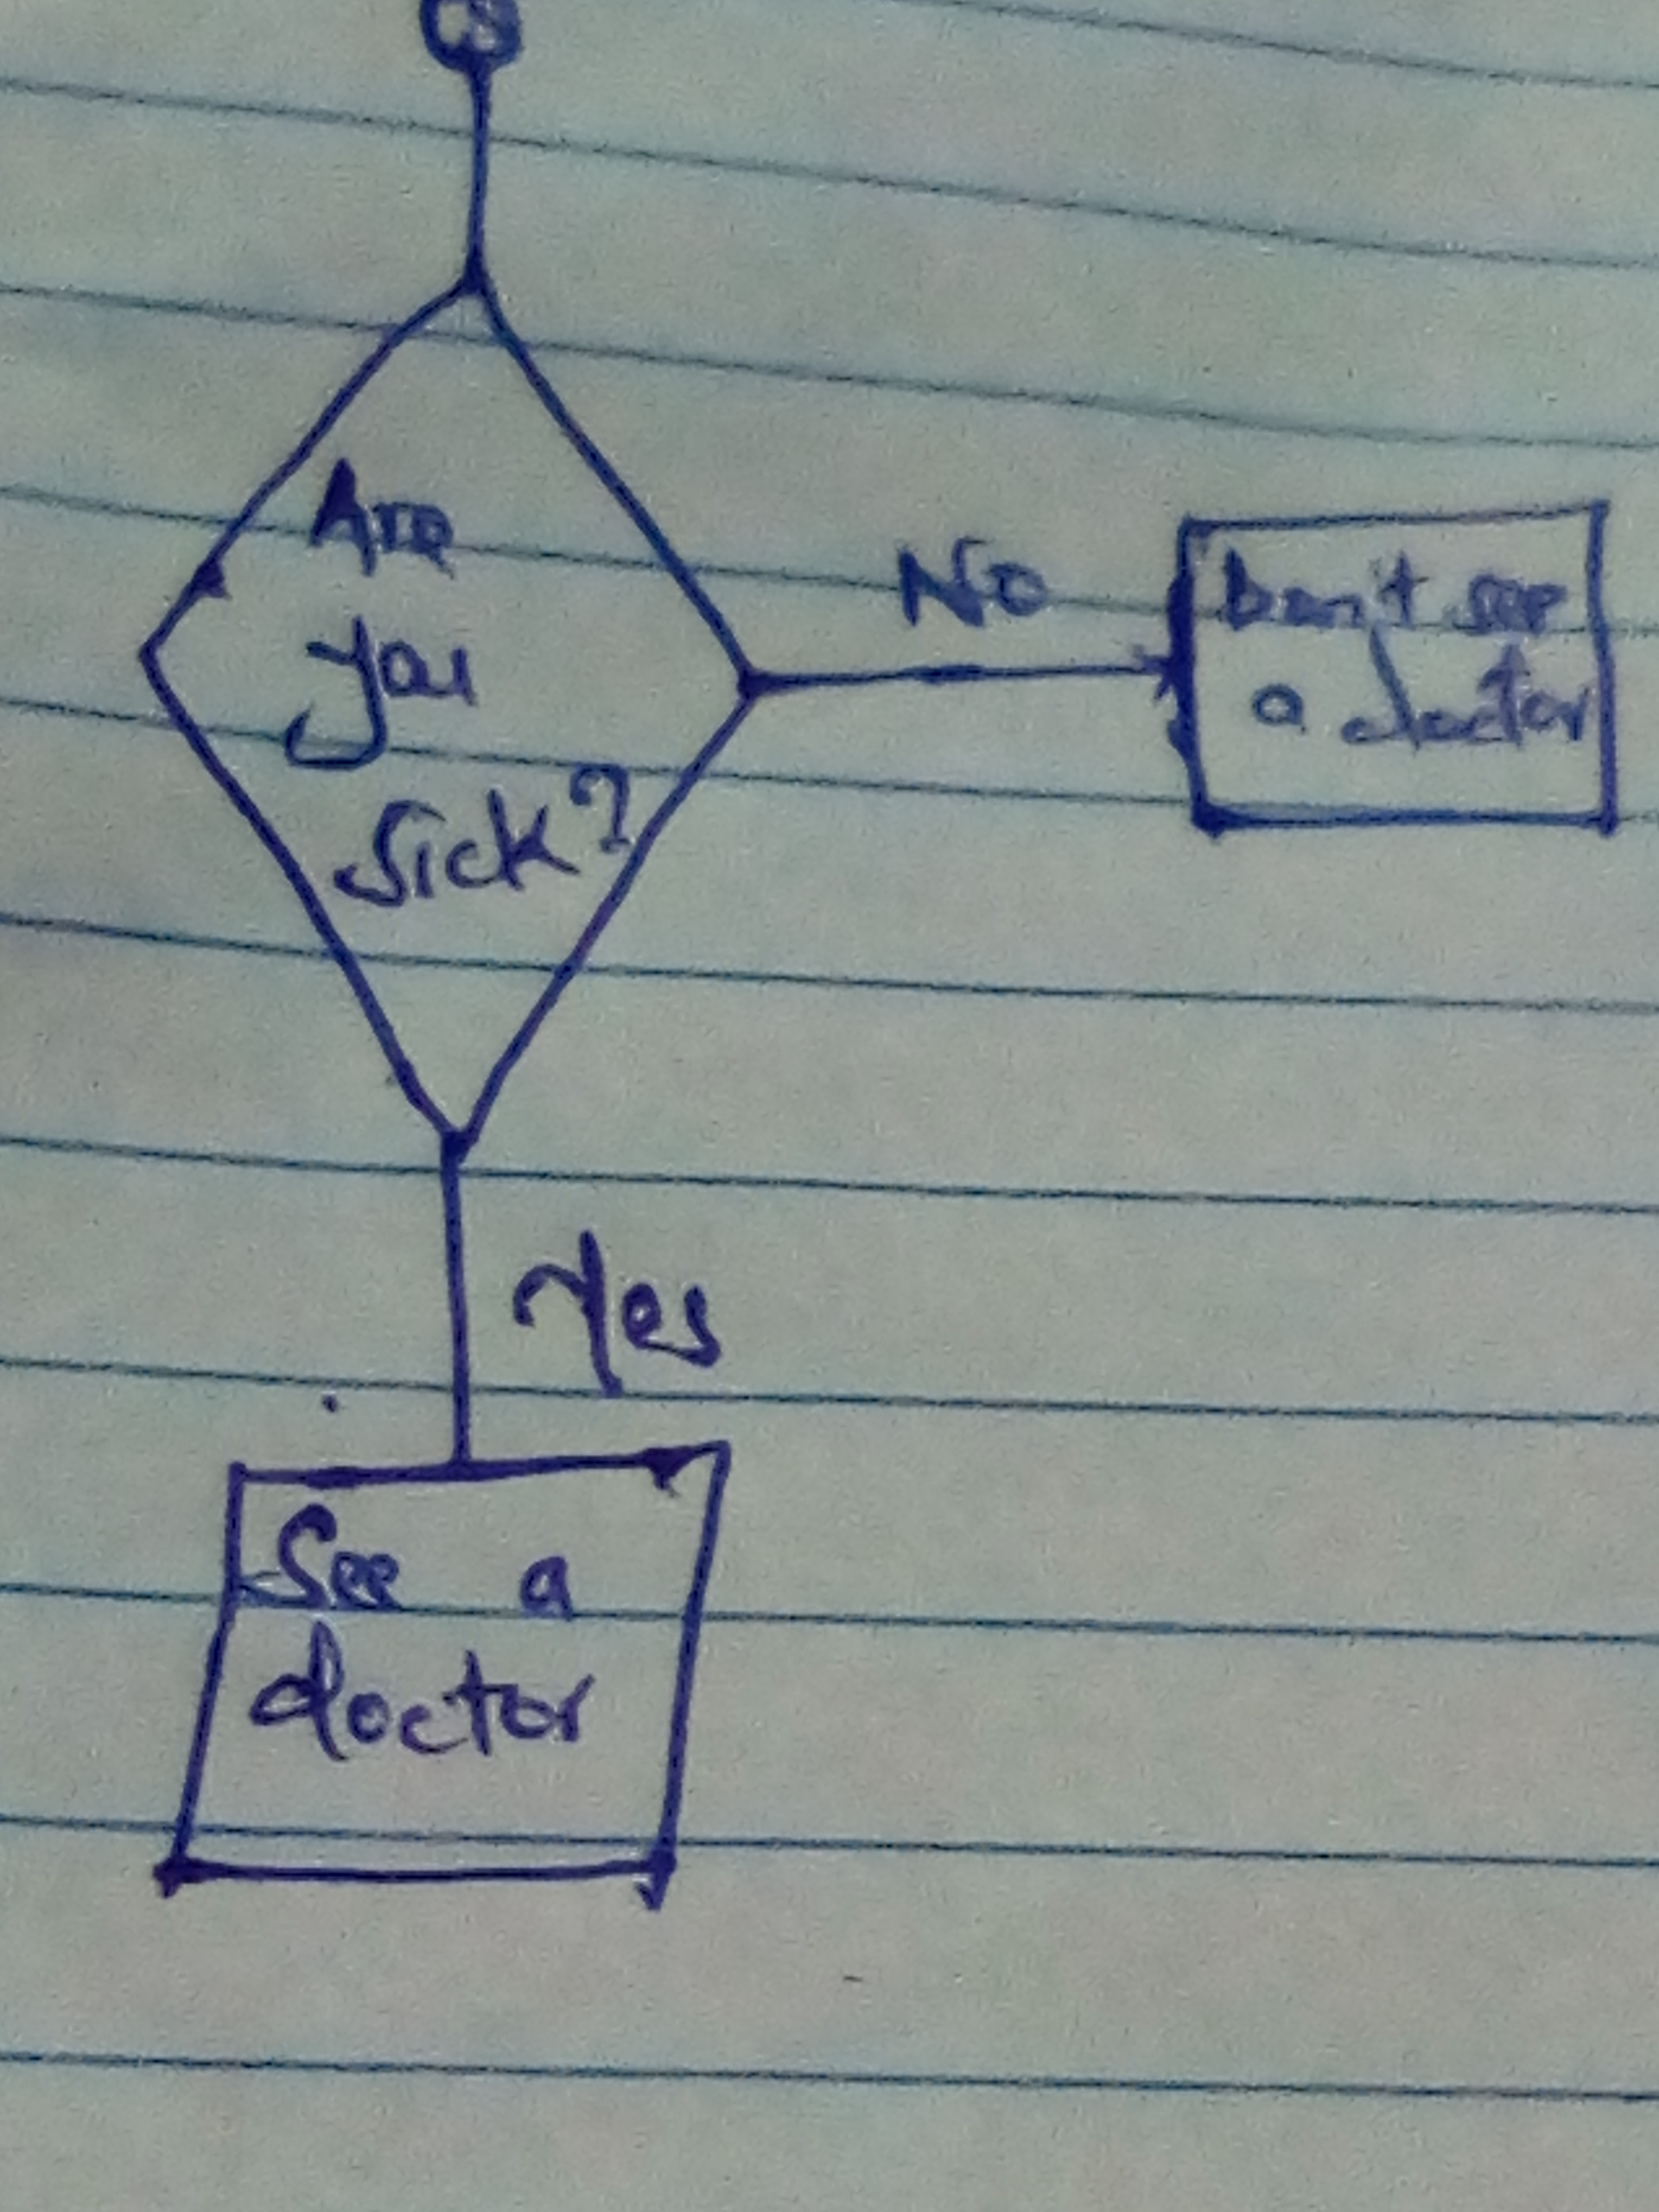 Are
you
Sick?
No
Don't see
a doctor
Yes
See a
doctor